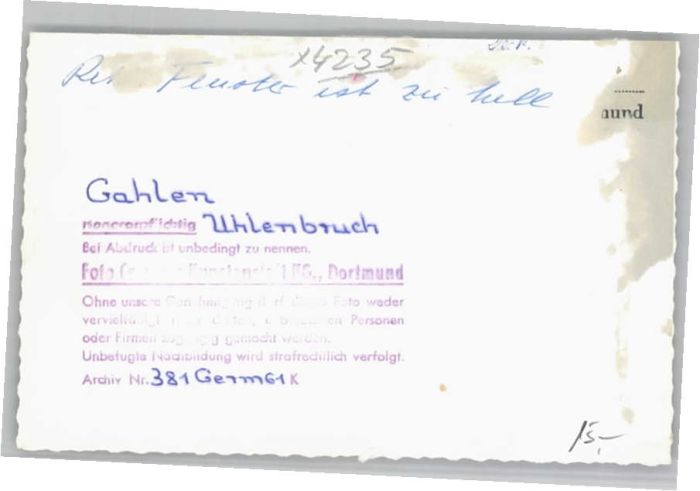 x4235
Fenster ist zu hell
aund
Gahlen
honorarpflichtig Uhlenbruch
Bei Abdruck ist unbedingt zu nennen.
Foto KG., Dortmund
Ohne unsere Genehmigung darf dieses Foto weder
vervielfältigt noch dritten, Personen
oder Firmen zugängig gemacht werden.
Unbefugte Nachbildung wird strafrechtlich verfolgt.
Archiv Nr. 381 Germ61 K
15,-